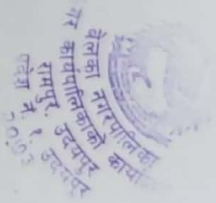 बेलका नगरपालिका
नगर कार्यपालिकाको कार्या
रामपुर, उदयपुर
प्रदेश नं. १, उदयपुर
२०७३